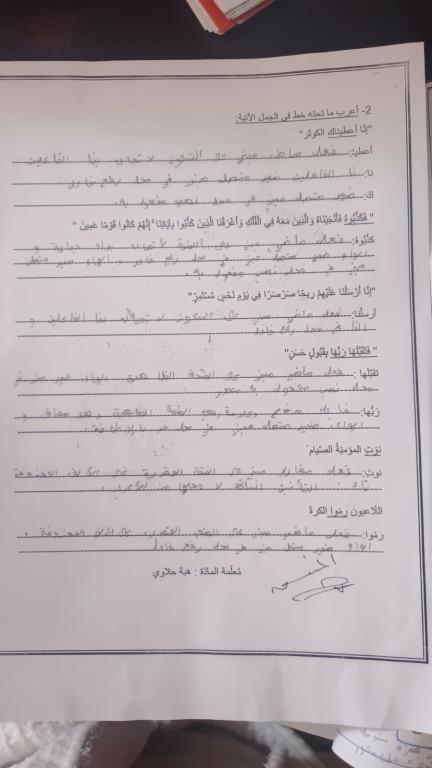 2- أعرب ما تحته خط في الجمل الآتية:
"إنّا أعطيناك الكوثر"
أعطيـ: فعل ماضٍ مبني على السكون لاتصاله بنا الفاعلين
نا: نا الفاعلين ضمير متصل مبني في محل رفع فاعل
ك: ضمير متصل مبني في محل نصب مفعول به
" فَكَذَّبُوهُ فَأَنْجَيْنَاهُ وَالَّذِينَ مَعَهُ فِي الْفُلْكِ وَأَغْرَقْنَا الَّذِينَ كَذَّبُوا بِآيَاتِنَا ۚ إِنَّهُمْ كَانُوا قَوْمًا عَمِينَ "
كذّبوهُ: فعل ماضي مبني على الضمة لاتصاله بواو الجماعة و
الواو ضمير متصل مبني في محل رفع فاعل و الهاء ضمير متصل
مبني في محل نصب مفعول به
"إِنَّا أَرْسَلْنَا عَلَيْهِمْ رِيحًا صَرْصَرًا فِي يَوْمِ نَحْسٍ مُسْتَمِرٍّ"
أرسلْنا: فعل ماضي مبني على السكون لاتصاله بنا الفاعلين و
النا في محل رفع فاعل
" فَتَقَبَّلَهَا رَبُّهَا بِقَبُولٍ حَسَنٍ"
تقبّلها: فعل ماضي مبني على الفتحة الظاهرة الهاء ضمير متصل في
محل نصب مفعول به
ربُّها: فاعل مرفوع وعلامة رفعه الضمة الظاهرة و هو مضاف و
الهاء: ضمير متصل مبني في محل جر بالإضافة
نوَتِ المؤمنةُ الصّيام.
نوت: فعل ماضي مبني على الفتحة المقدرة على الألف المحذوفة
تاء: التأنيث الساكنة لا محل لها من الإعراب
اللاعبون رمَوا الكرة
رموا: فعل ماضي مبني على الضم المقدر على الألف المحذوفة و
الواو ضمير متصل مبني في محل رفع فاعل
مُعلّمة المادّة : هبة حلاوي